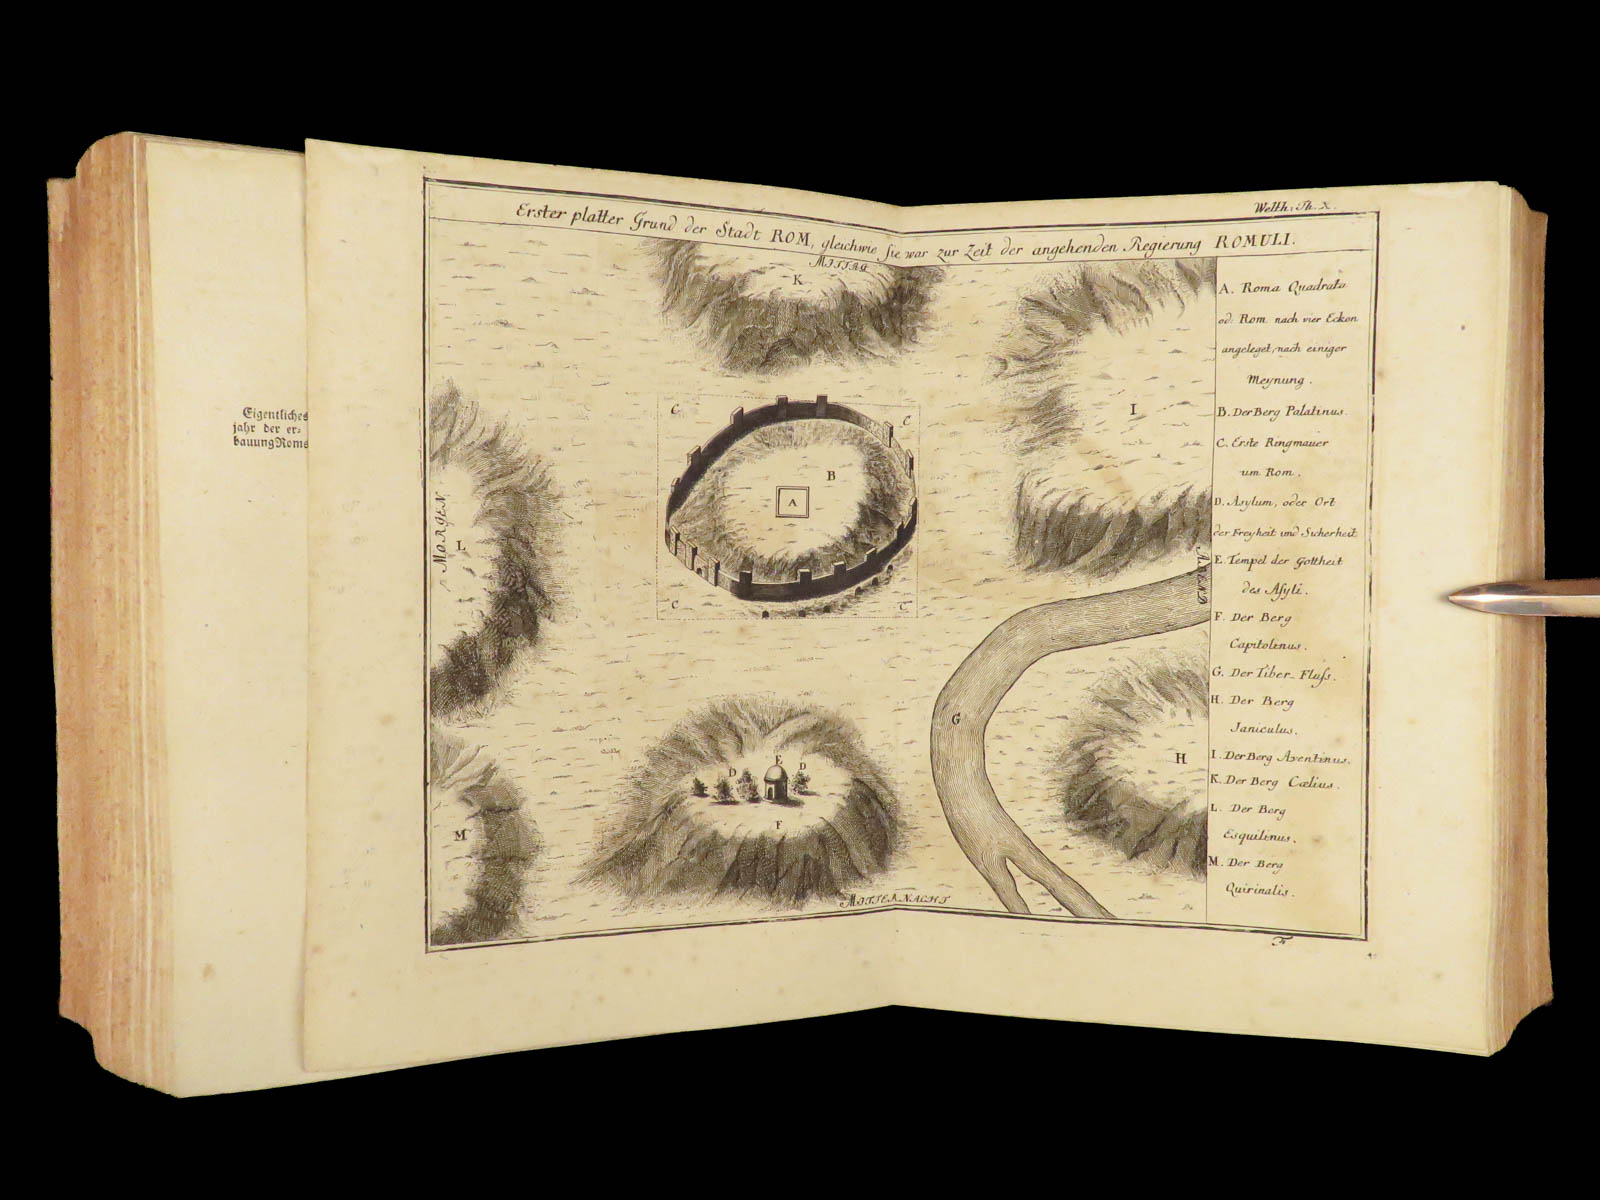 Eigentliches
jahr der er-
bauung Roms
Welth: Th. X.
Erster platter Grund der Stadt ROM, gleichwie Sie war zur Zeit der angehenden Regierung ROMULI.
MITTAG
K
I
C
C
B
A
MORGEN
L
ABEND
C
C
G
H
D
E
D
F
M
MITTERNACHT
A. Roma Quadrata
od: Rom nach vier Ecken
angeleget, nach einiger
Meynung.
B. Der Berg Palatinus.
C. Erste Ringmauer
um Rom.
D. Asylum, oder Ort
der Freyheit und Sicherheit
E. Tempel der Gottheit
des Asyli.
F. Der Berg
Capitolinus.
G. Der Tiber-Fluſs.
H. Der Berg
Janiculus.
I. Der Berg Aventinus.
K. Der Berg Cœlius.
L. Der Berg
Esquilinus.
M. Der Berg
Quirinalis.
F